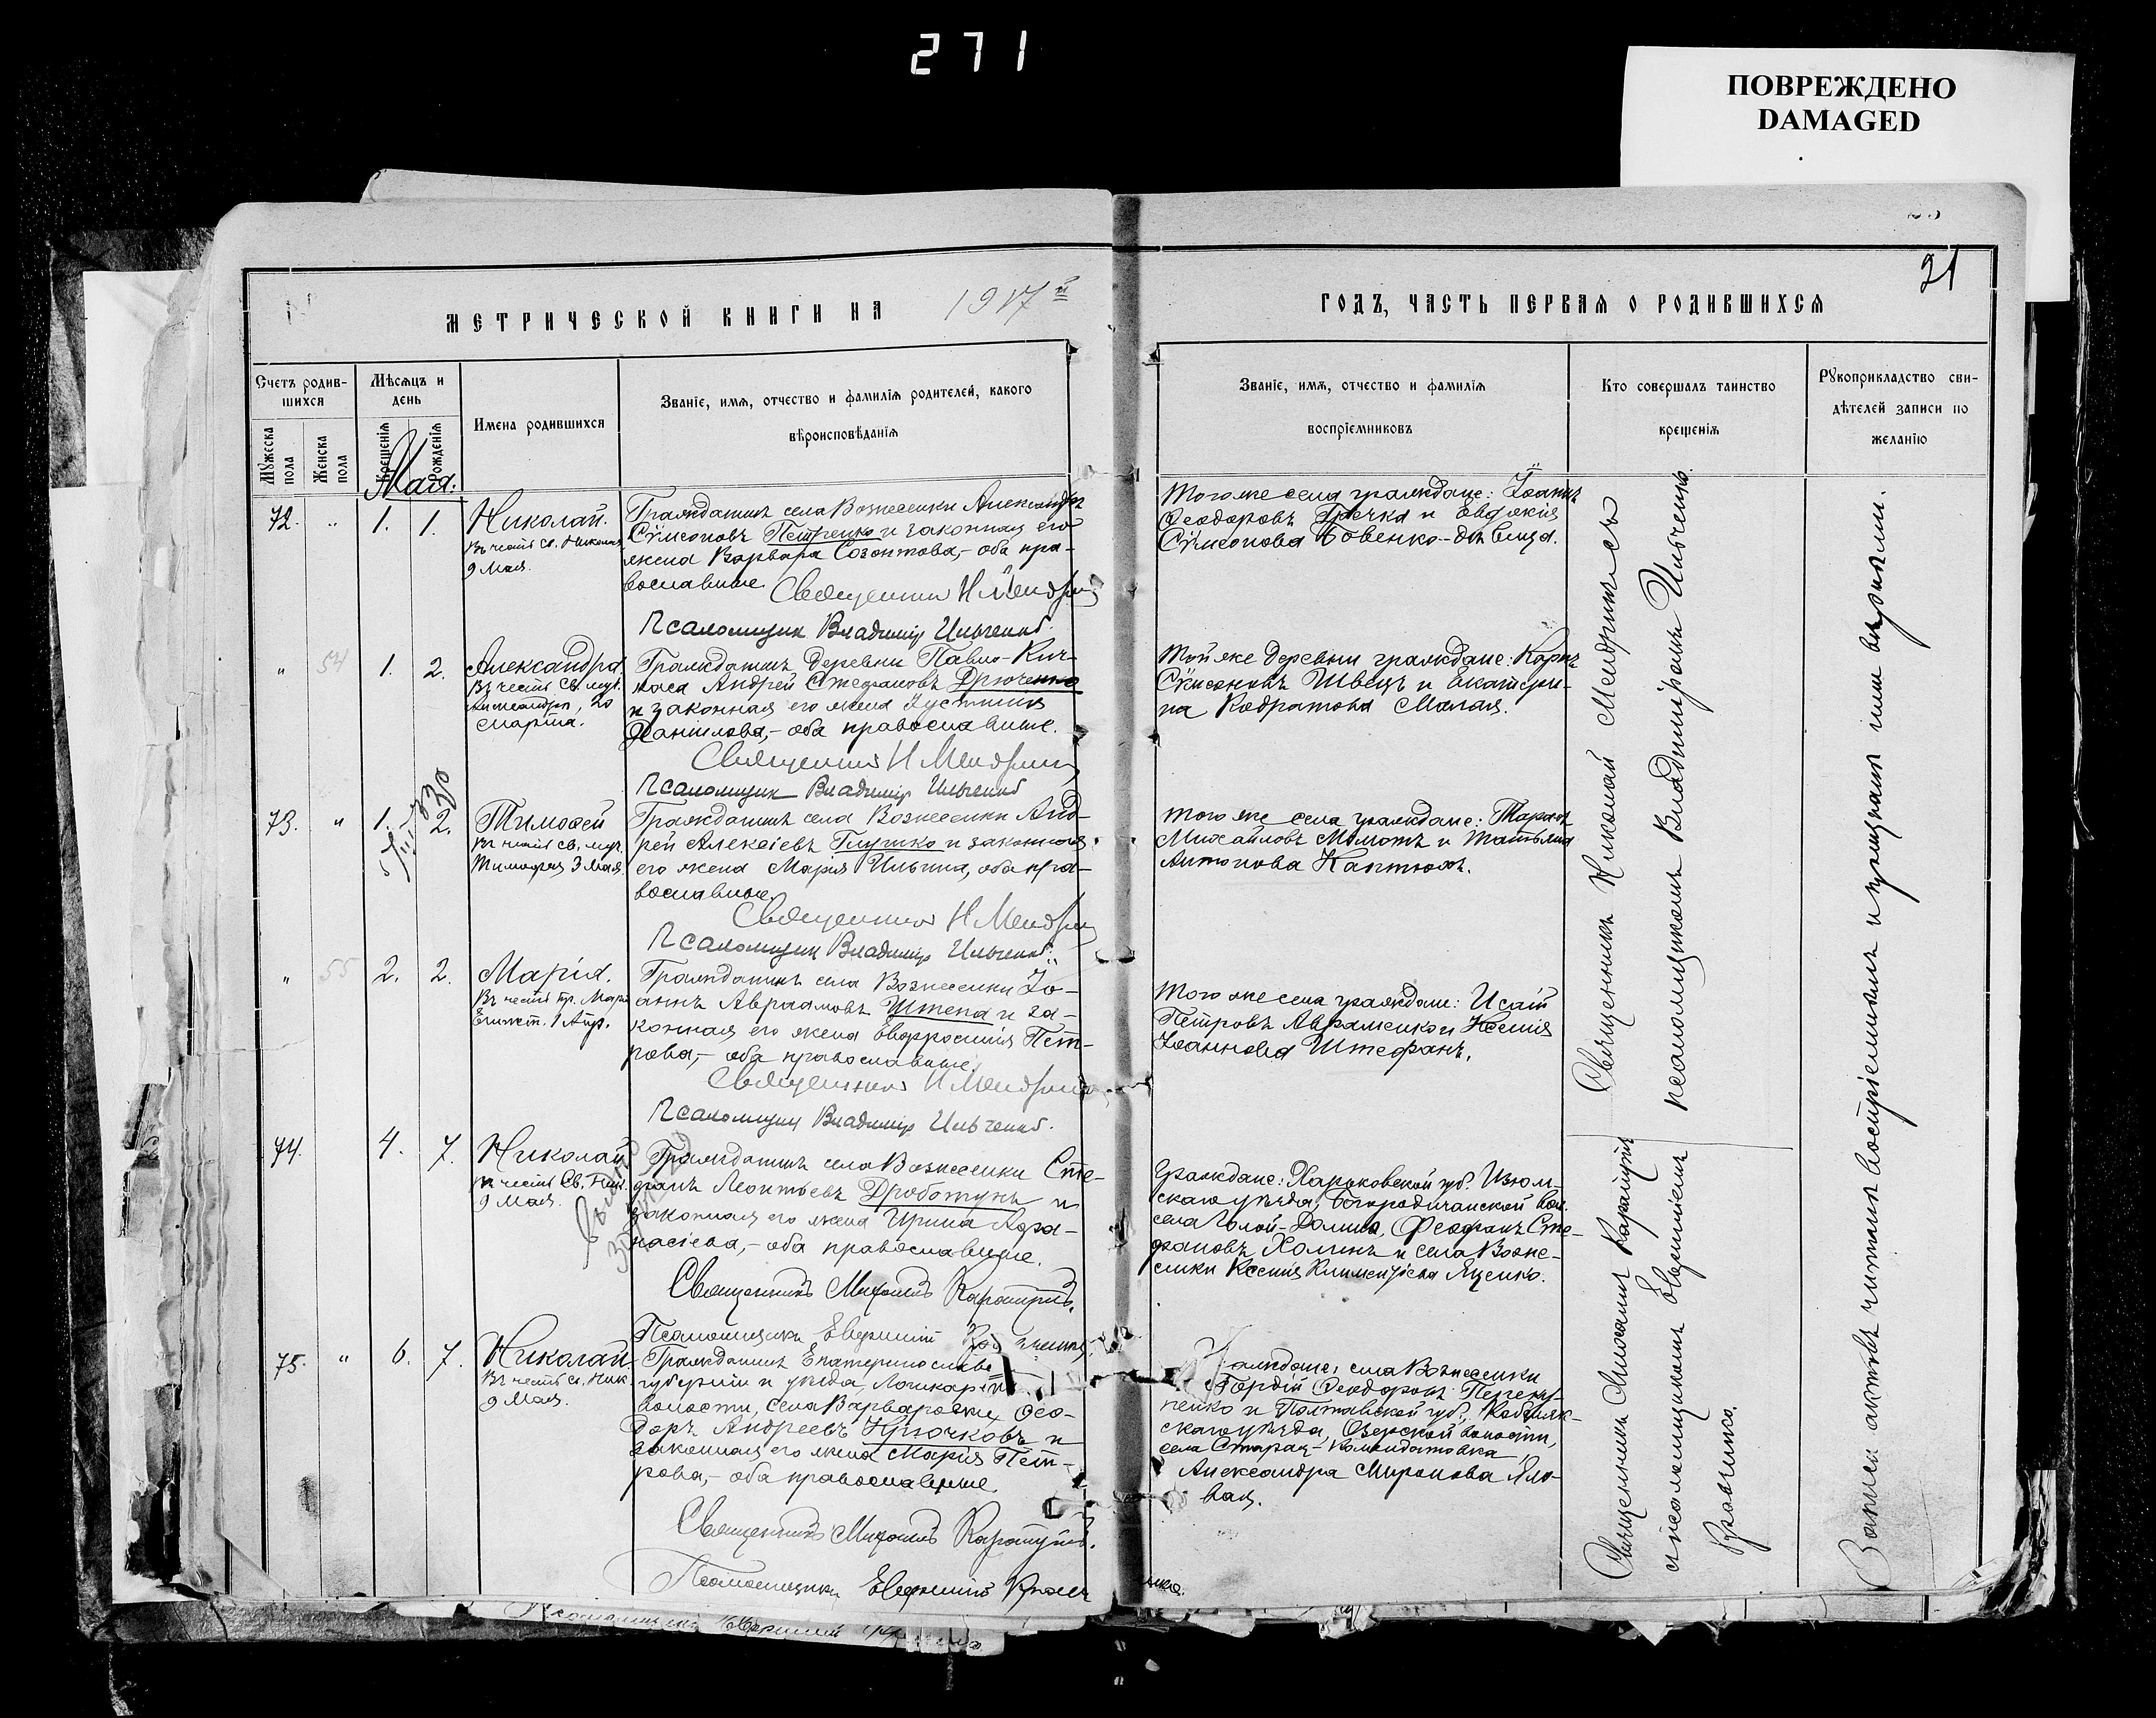 271
ПОВРЕЖДЕНО
DAMAGED
21
МЕТРИЧЕСКОЙ КНИГИ НА 1917й
ГОДЪ, ЧАСТЬ ПЕРВАЯ О РОДИВШИХСЯ
Счетъ родив-
шихся
Мѣсяцъ и
день
Мужеска
пола
Женска
пола
Крещенія
Рожденія
Имена родившихся
Званіе, имя, отчество и фамилія родителей, какого
вѣроисповѣданія
Званіе, имя, отчество и фамилія
воспріемниковъ
Кто совершалъ таинство
крещенія
Рукоприкладство сви-
дѣтелей записи по
желанію
Мая.
72. " 1. 1.
Николай.
Въ честь св. Николая
9 Мая.
Гражданинъ села Вознесенки Александръ
Сѵмеоновъ Петренко и законная его
жена Варвара Созонтова,- оба пра-
вославные.
Священникъ Н Мендрин
Псаломщик Владимір Ильченко.
Тогоже села граждане: Іоаннъ
Ѳеодоровъ Гречка и Евдокія
Сѵмеонова Бовенко-дѣвица.
" 54 1. 2.
Александра
Въ честь св. муч.
Александры, 20
марта.
Гражданинъ деревни Павло-Кич-
каса Андрей Стефановъ Дрюченко
и законная его жена Іустинія
Даніилова,- оба православные.
Священникъ Н Мендрин
Псаломщик Владимір Ильченко
Той же деревни граждане: Карпъ
Сѵмеоновъ Швецъ и Екатери-
на Кодратова Малая.
73. " 1. 2. 30
Тимоѳей
Въ честь св. муч.
Тимоѳея 3 Мая.
Гражданинъ села Вознесенки Анд-
рей Алексіевъ Глушко и законная
его жена Марія Ильина, оба пра-
вославные.
Священникъ Н Мендрин
Псаломщик Владимір Ильченко.
того же села граждане: Тарас
Михайловъ Момотъ и Татьяна
Антонова Каптюхъ.
" 55 2. 2.
Марія.
Въ честь пр. Маріи
Египет. 1 Апр.
Гражданинъ села Вознесенки Іо-
аннъ Авраамовъ Штепа и за-
конная его жена Евфросинія Пет-
рова,- оба православные.
Священникъ Н Мендрин
Псаломщик Владимір Ильченко.
Того же села граждане: Исаій
Петровъ Авраменко и Ксенія
Іоаннова Штефанъ.
74. 4. 7.
Николай
въ честь Св. Ник.
9 Мая.
Гражданинъ села Вознесенки Сте-
фанъ Леонтьевъ Дроботунъ и
законная его жена Ирина Аѳа-
насіева,- оба православные.
Священникъ Михаилъ
Псаломщикъ Евфимій
Граждане: Харьковской губ. Изюм-
скаго уѣзда, Богородичанской вол.
села Голой-Долины, Ѳеофанъ Сте-
фановъ Холинъ и села Возне-
сенки Ксенія Климентіева Яценко.
75. " 6. 7.
Николай
Въ честь св. Ник.
9 Мая.
Гражданинъ Екатеринославс
губерніи и уѣзда, Лошкар
волости, села Варваровки, Ѳео-
доръ Андреевъ Крючковъ и
законная его жена Марія Пет-
рова,- оба православные.
Священникъ Михаилъ
Псаломщикъ Евфимій
Граждане: села Вознесенки
Гордій Ѳеодоровъ
и Полтавской губ., Кобеляк-
скаго уѣзда, Озерской волости,
села Старая-
Александра Миронова Яло-
вая.
Священникъ Николай Мендринъ съ
псаломщикомъ Владиміромъ Ильченко.
Священникъ Михаилъ
съ псаломщикомъ Евфиміемъ
Записи актовъ читали воспріемникамъ и